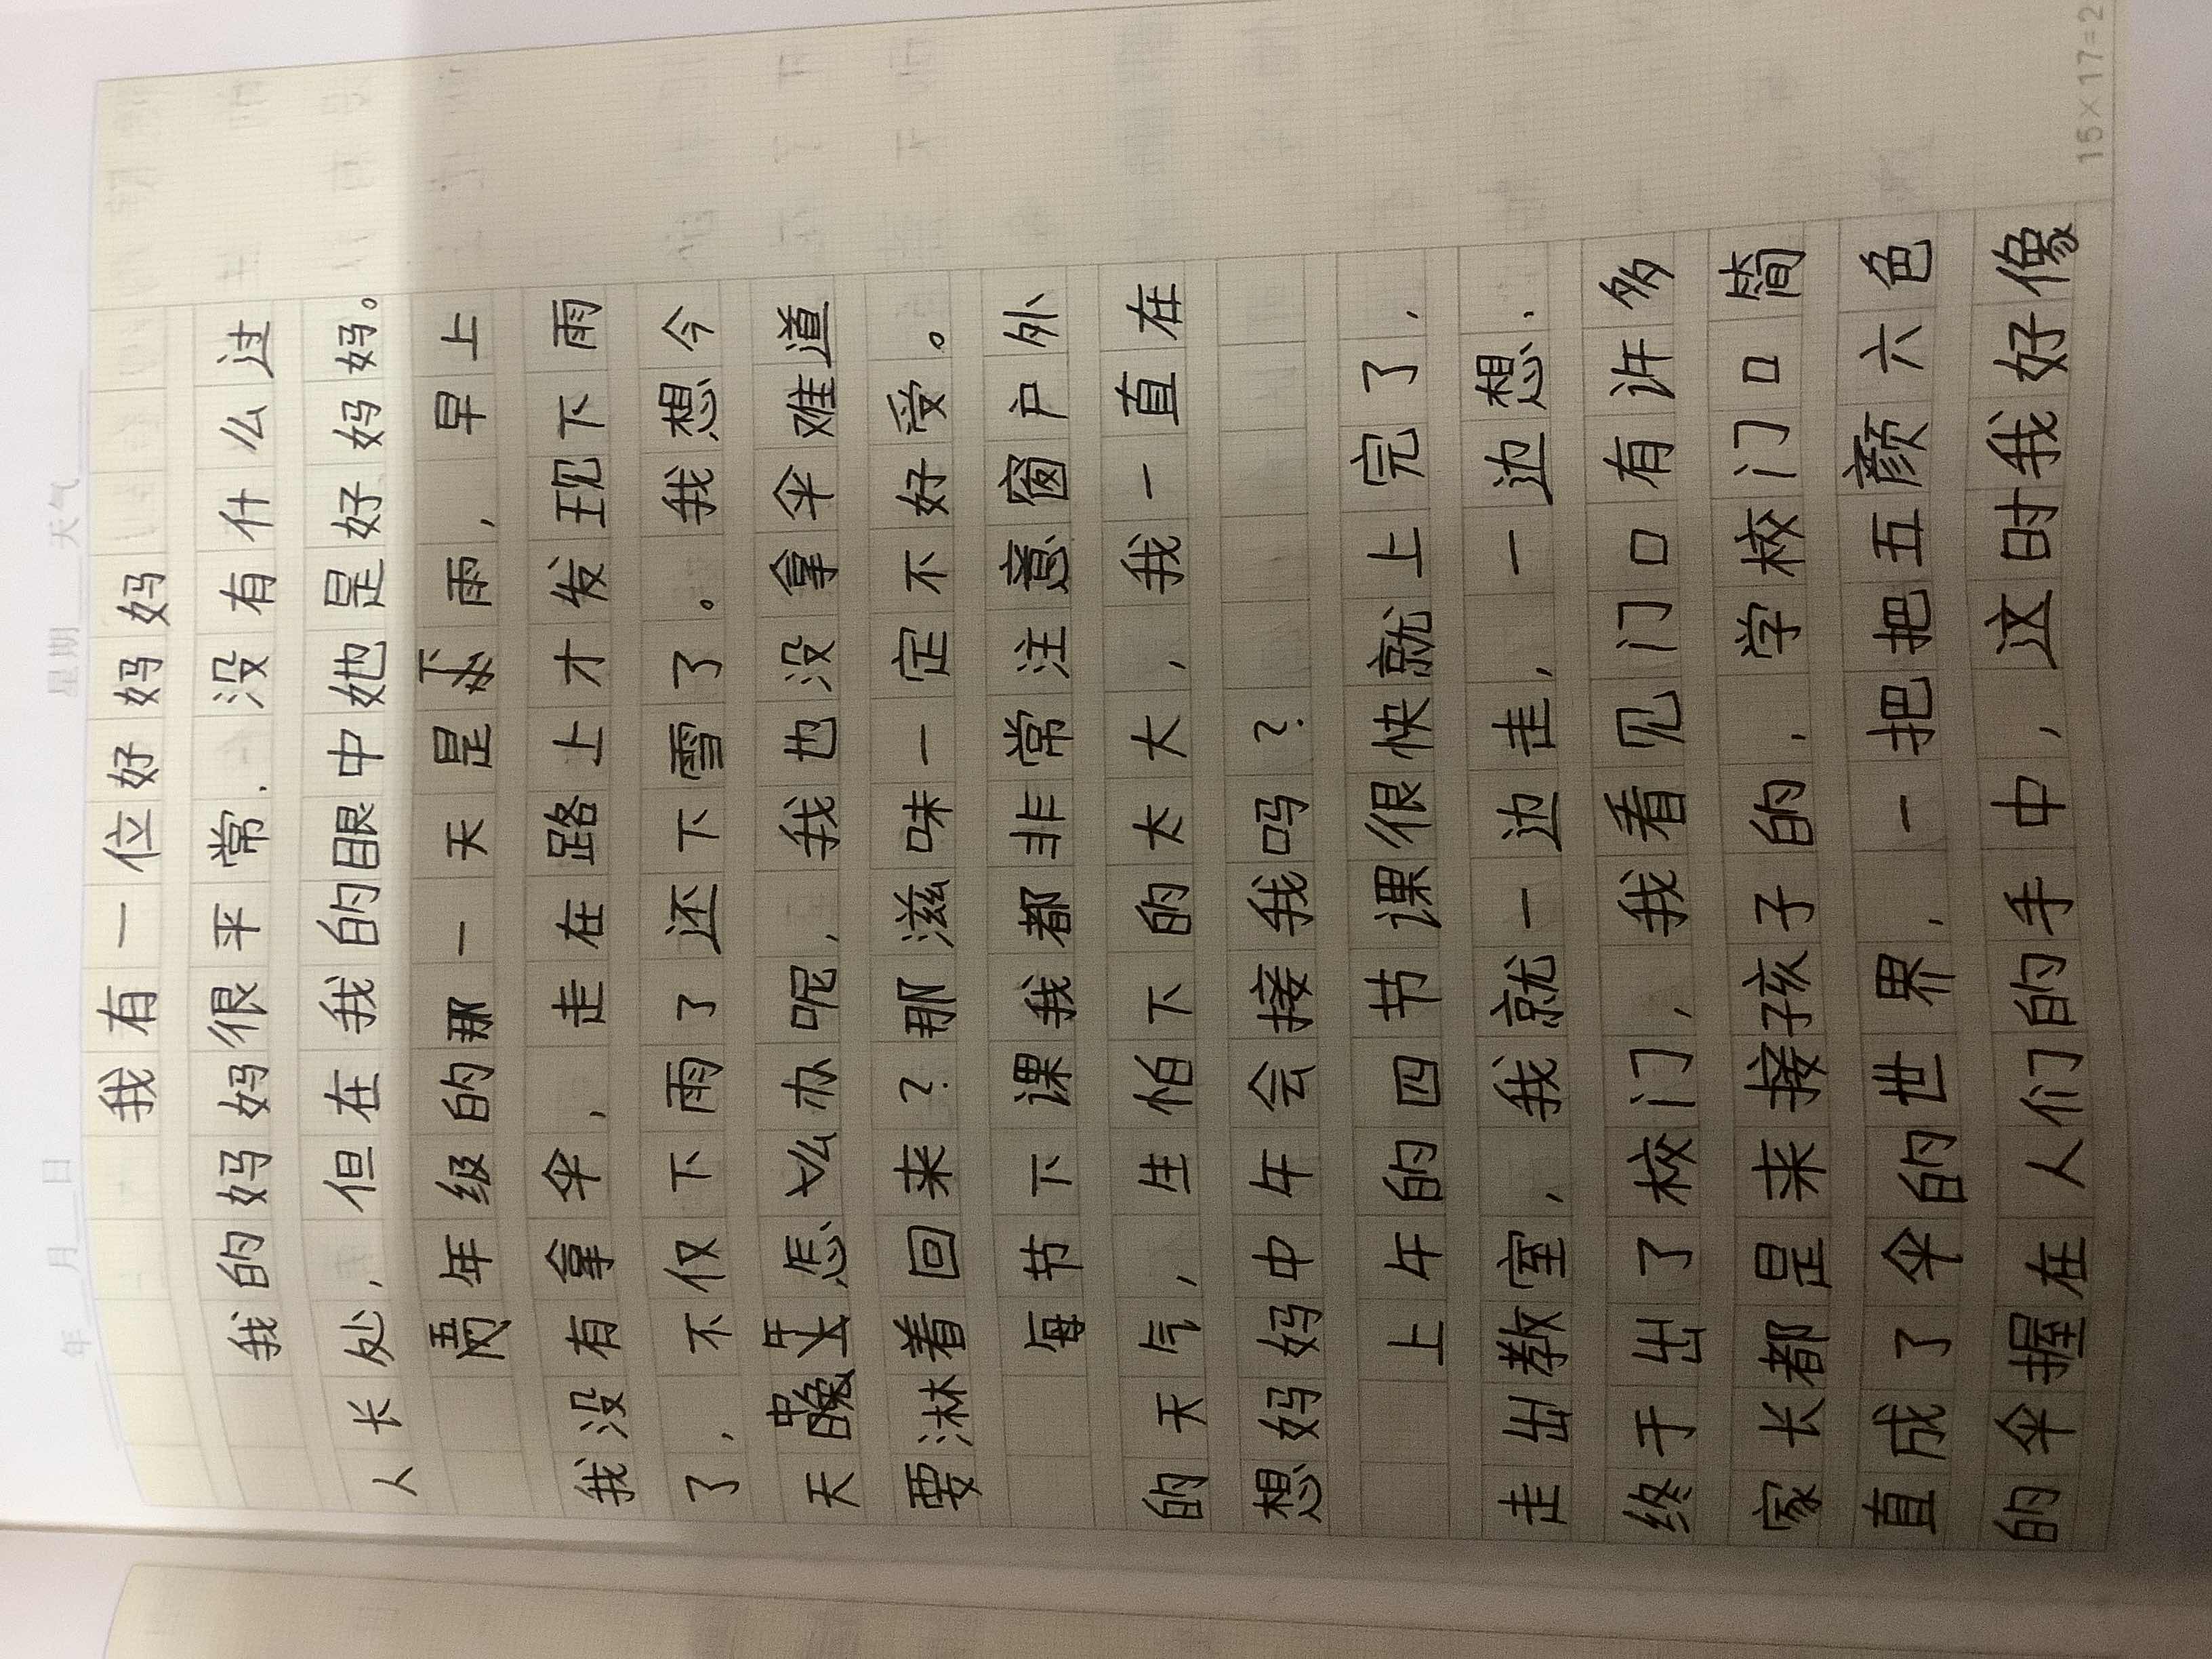 年 月 日 星期 天气
我有一位好妈妈
我的妈妈很平常,没有什么过
人长处,但在我的眼中她也是好妈妈。
两年级的那一天是下雨,早上
我没有拿伞,走在路上才发现下雨
了,不仅下雨了还下雪了。我想今
天中午怎么办呢,我也没拿伞难道
要淋着回来?那滋味一定不好受。
每节下课我都非常注意窗户外
的天气,生怕下的太大,我一直在
想妈妈中午会接我吗?
上午的四节课很快就上完了,
走出教室,我就一边走,一边想,
终于出了校门,我看见门口有许多
家长都是来接孩子的,学校门口简
直成了伞的世界,一把把五颜六色
的伞握在人们的手中,这时我好像
15×17=2